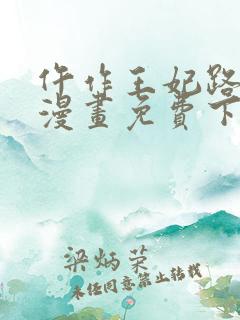 仵作王妃路
漫畫免費下
梁炳荣
未经同意禁止转载